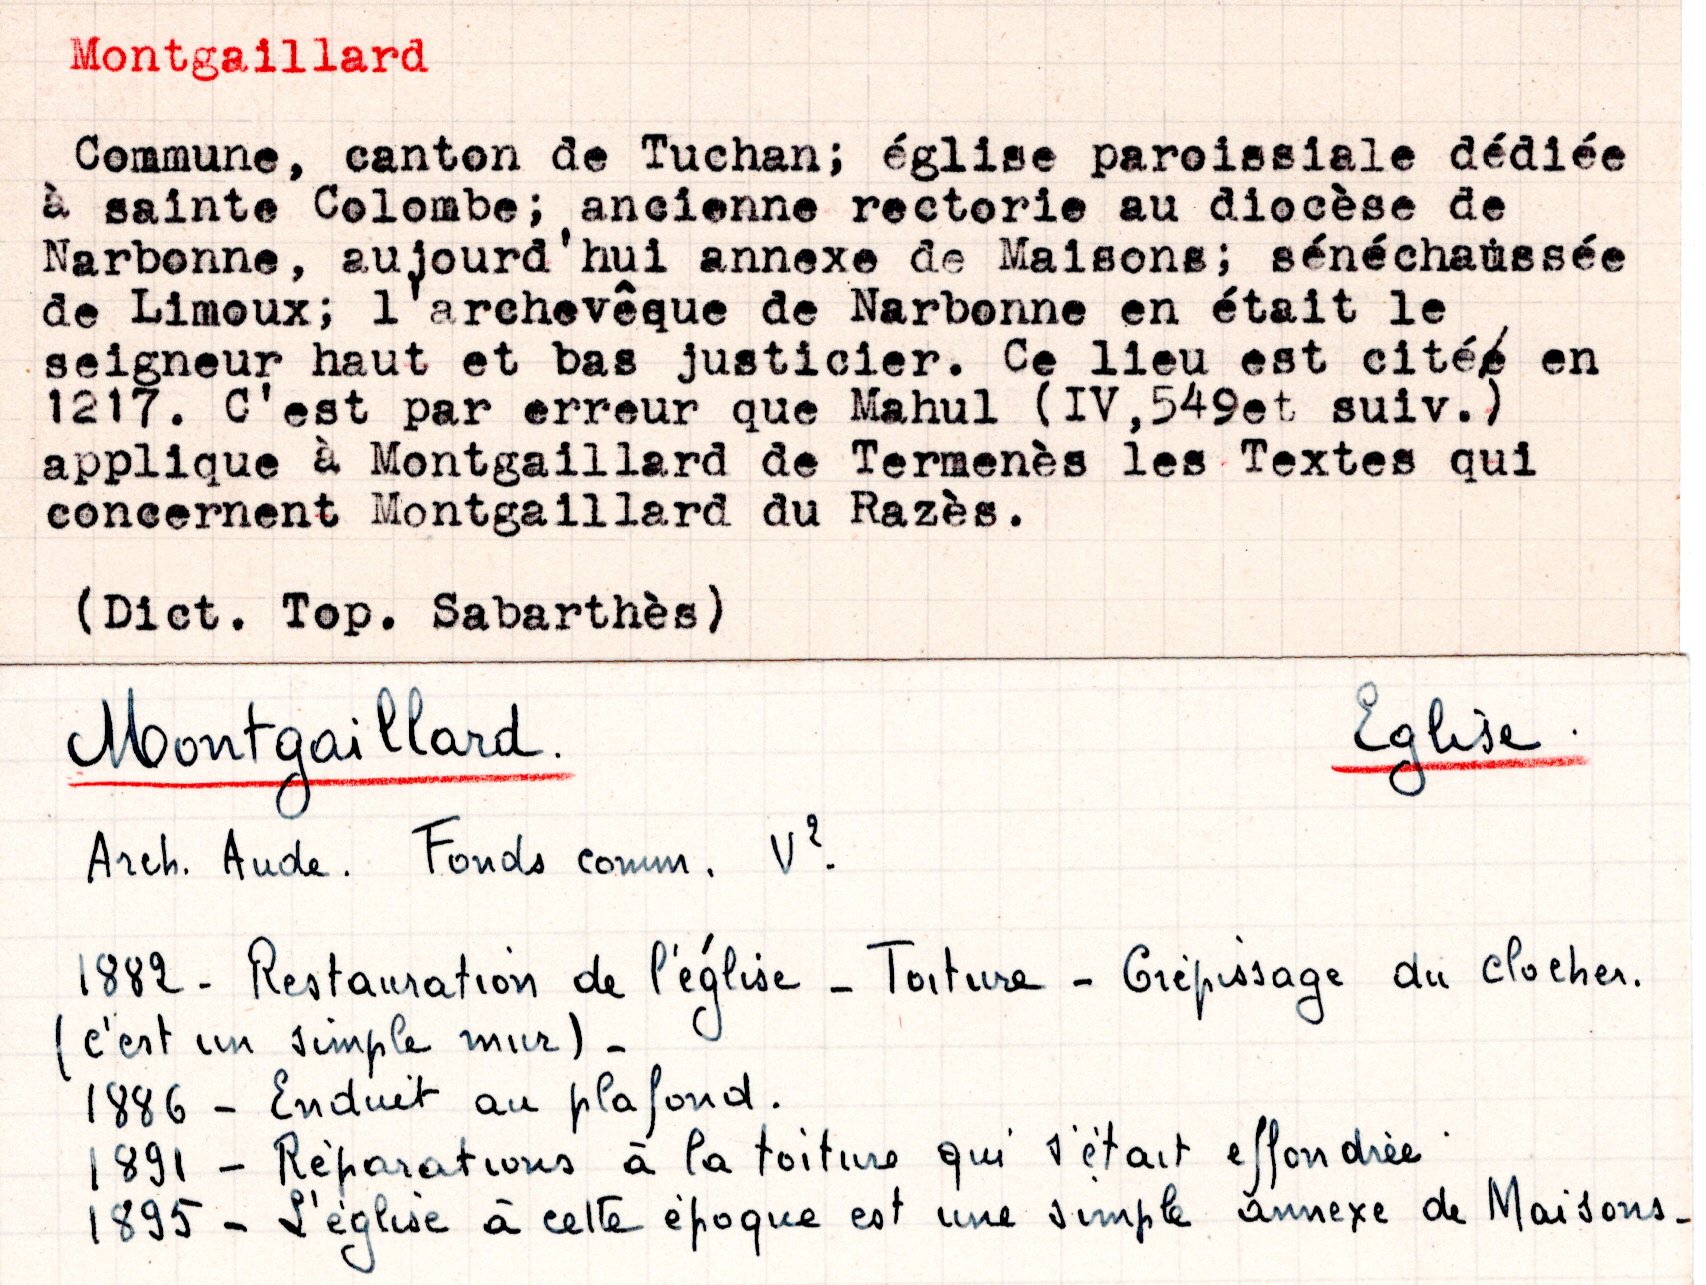 Montgaillard
Commune, canton de Tuchan; église paroissiale dédiée
à sainte Colombe; ancienne rectorie au diocèse de
Narbonne, aujourd'hui annexe de Maisons; sénéchaussée
de Limoux; l'archevêque de Narbonne en était le
seigneur haut et bas justicier. Ce lieu est cité en
1217. C'est par erreur que Mahul (IV,549et suiv.)
applique à Montgaillard de Termenès les Textes qui
concernent Montgaillard du Razès.
(Dict. Top. Sabarthès)
Montgaillard. Eglise.
Arch. Aude. Fonds comm. V².
1882 - Restauration de l'église - Toiture - Crépissage du clocher.
(c'est un simple mur) -
1886 - Enduit au plafond.
1891 - Réparations à la toiture qui s'était effondrée.
1895 - L'église à cette époque est une simple annexe de Maisons -